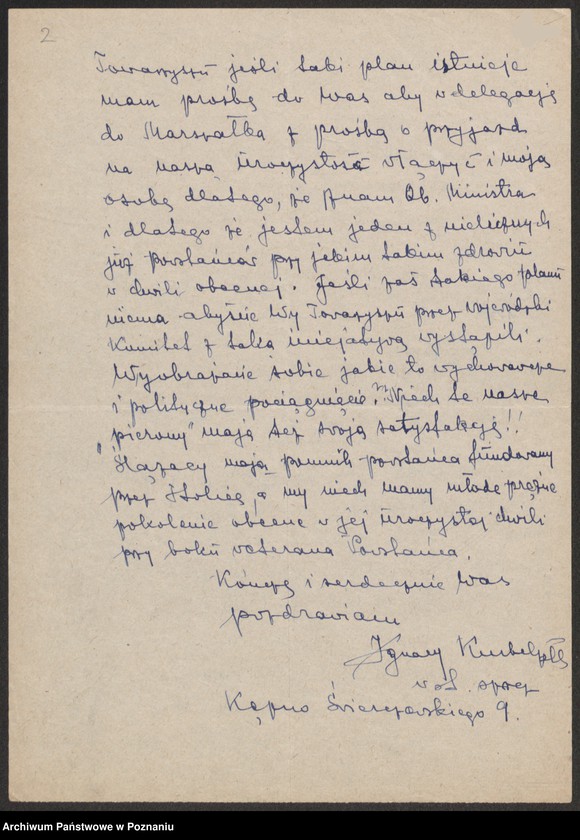 2
Towarzyszu jeśli taki plan istnieje
mam prośbę do Was aby w delegację
do Marszałka z prośbą o przyjazd
na naszą uroczystość włączyć i moją
osobę dlatego, że znam Ob. Ministra
i dlatego że jestem jeden z nielicznych
już Powstańców przy jakim takim zdrowiu
w chwili obecnej. Jeśli zaś takiego planu
niema abyście Wy Towarzyszu przez Wojewódzki
Komitet z taką inicjatywą wystąpili.
Wyobrażacie sobie jakie to wychowawcze
i polityczne pociągnięcie? "Niech te nasze
pierony" mają też swoją satysfakcję!!
"Ślązacy mają pomnik powstańca fundowany
przez Stolicę, a my niech mamy młode prężne
pokolenie obecne w jej uroczystej chwili
przy boku weterana Powstańca.
Kończę i serdecznie Was
pozdrawiam
Ignacy
Kępno Świerczewskiego 9.
Archiwum Państwowe w Poznaniu